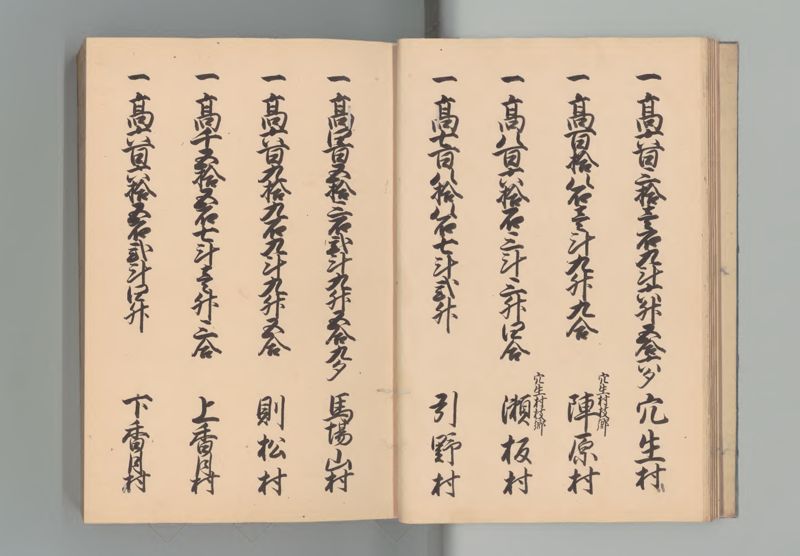 一 高六百三拾壱石九斗六升五合八夕 穴生村
穴生村枝郷
一 高百拾八石壱斗九升九合 陣原村
穴生村枝郷
一 高八百六拾石三斗三升四合 瀬板村
一 高七百八拾八石七斗弐升 引野村
一 高四百五拾三石弐斗九升五合九夕 馬場山村
一 高六百九拾九石九斗九升五合 則松村
一 高千五拾五石七斗壱升三合 上香月村
一 高六百六拾五石弐斗四升 下香月村